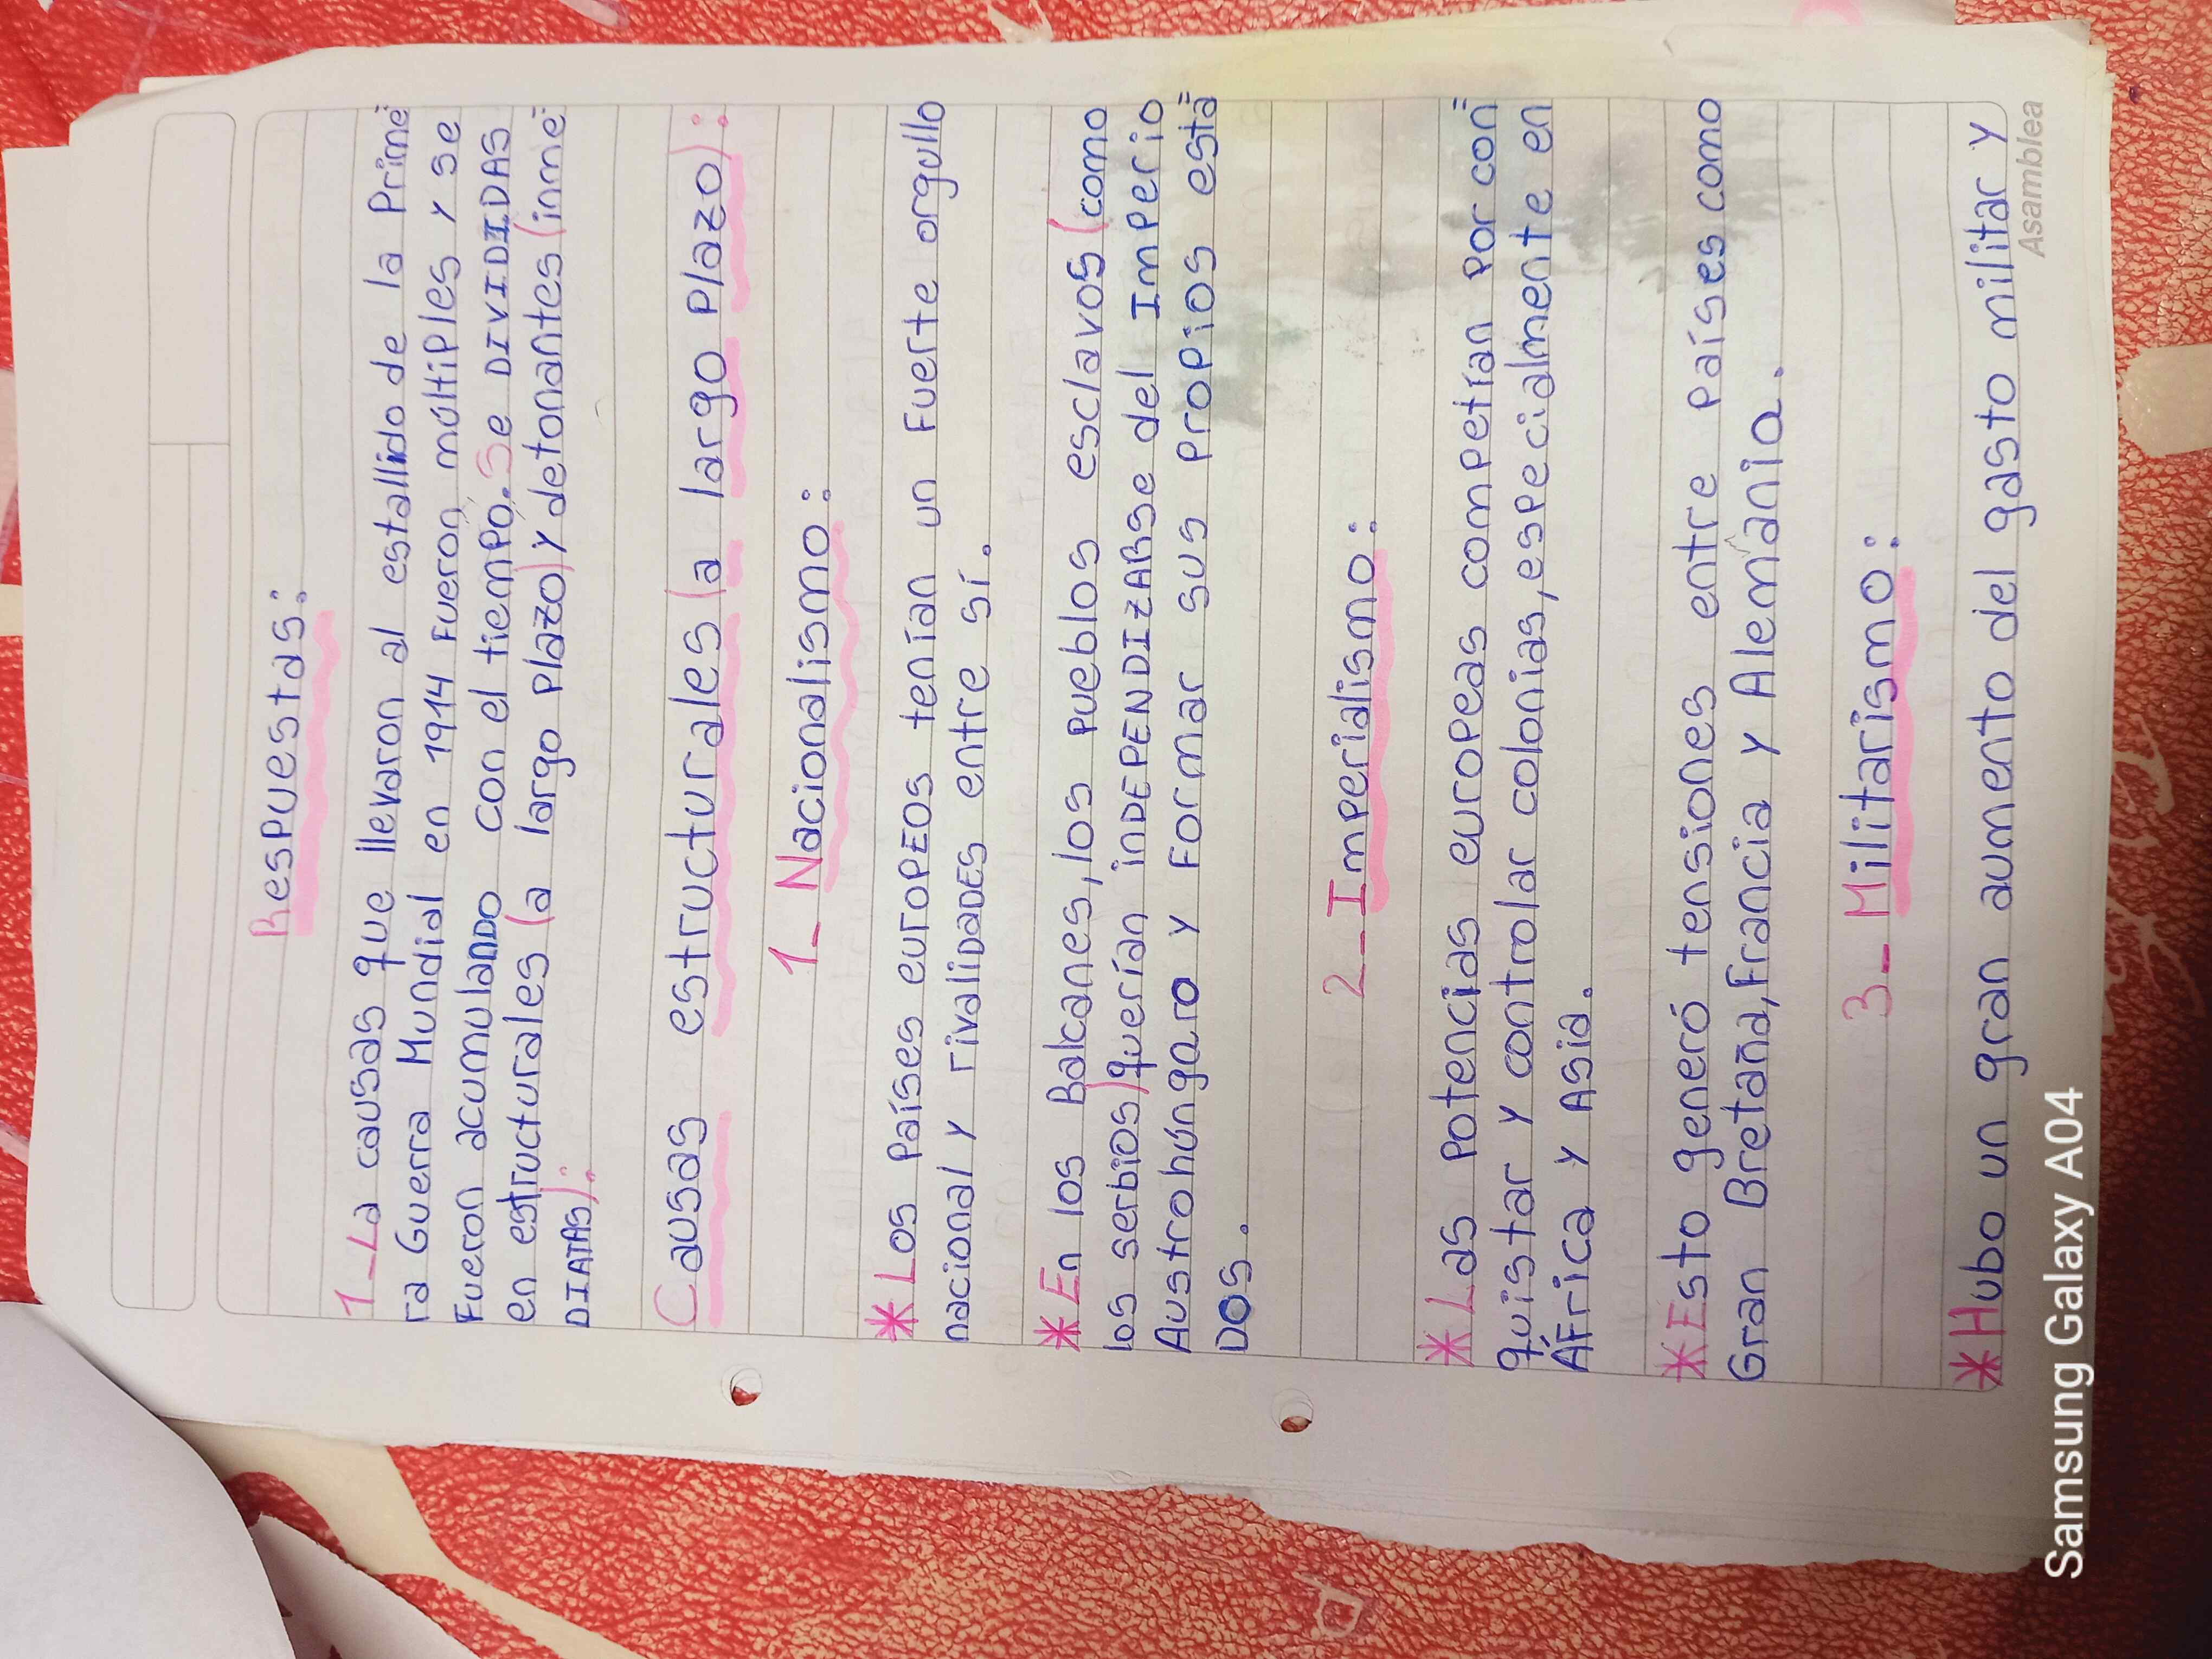 Respuestas:
1_La causas que llevaron al estallido de la Prime=
ra Guerra Mundial en 1914 fueron múltiples y se
fueron acumulando con el tiempo. Se DIVIDIDAS
en estructurales (a largo plazo) y detonantes (inme=
DIATAS):
Causas estructurales (a largo plazo):
1_ Nacionalismo:
*Los países europeos tenían un fuerte orgullo
nacional y rivalidades entre sí.
*En los Balcanes, los pueblos esclavos (como
los serbios) querían independizarse del Imperio
Austrohúngaro y formar sus propios esta=
Dos.
2_ Imperialismo:
*Las potencias europeas competían por con=
quistar y controlar colonias, especialmente en
África y Asia.
*Esto generó tensiones entre países como
Gran Bretaña, Francia y Alemania.
3_ Militarismo:
*Hubo un gran aumento del gasto militar y
Asamblea
Samsung Galaxy A04